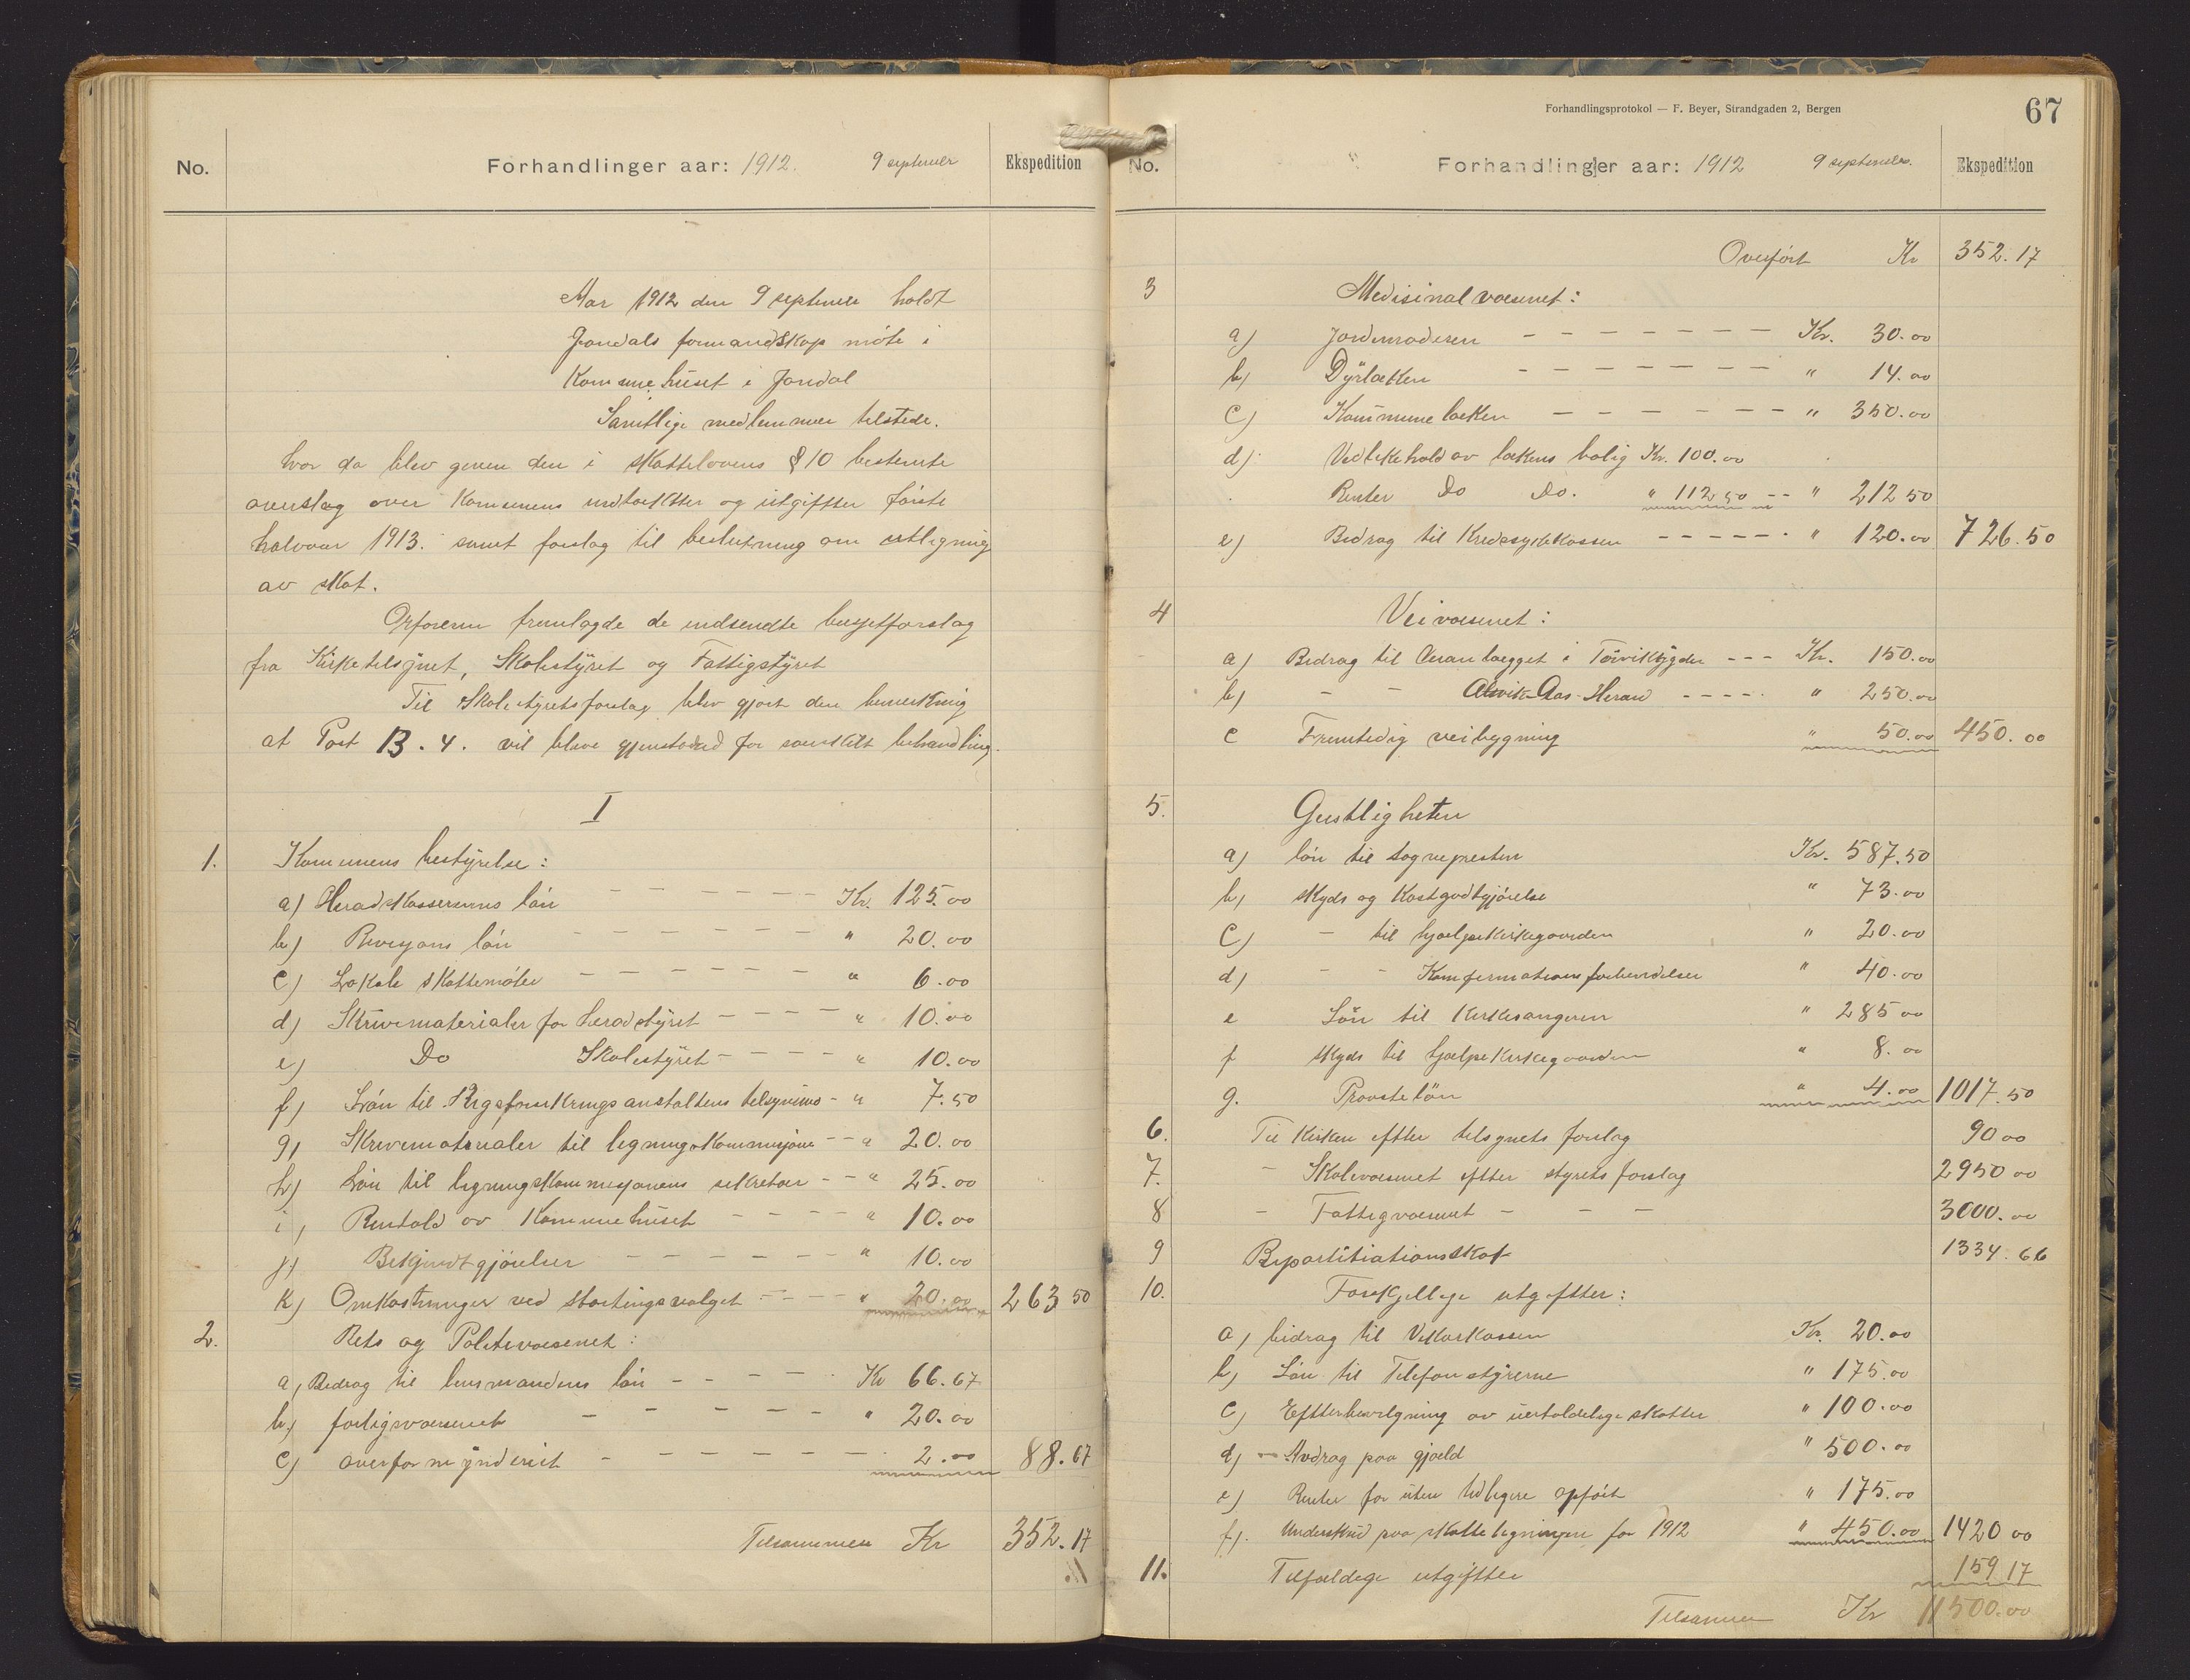 No.
Forhandlinger aar: 1912. 9 september
Ekspedition
Aar 1912 den 9 september holdt
Jondals formandskap møte i
Kommunehuset i Jondal
Samtlige medlemmer tilstede.
hvor da blev given den i skattelovens § 10 bestemte
overslag over Kommunens indtækter og utgifter første
halvaar 1913. samt forslag til beslutning om utligning
av skat.
Orføreren fremlagde de indsendte busjetforslag
fra Kirketilsynet, Skolestyret og Fattigstyret
Til Skolestyrets forslag blev gjort den bemerkning
at Post B. 4. vil blive gjenstand for særskilt behandling.
I
1. Kommunens bestyrelse:
a) Heradskasserernes løn - - - - - - Kr. 125.00
b) Revisjons løn - - - - - - - " 20.00
c) Lokale skattemøter - - - - - - - " 6.00
d) Skrivematerialer for Heradstyret - - - - " 10.00
e) Do Skolestyret - - - - " 10.00
f) Løn til Rigsforsikringsanstaltens tilsynsmo - " 7.50
g) Skrivematerialer til ligningskommisjonen - - " 20.00
h) Løn til ligningskommisjonens sekretær - - " 25.00
i, Renhold av Kommunehuset - - - - " 10.00
j) Bekjendtgjørelser - - - - - - - " 10.00
k) Omkostninger ved stortingsvalget - - - - " 20.00 263 50
2. Rets og Politivæsenet:
a, Bidrag til lensmandens løn - - - - - Kr 66.67
b,) forligsvæsenet - - - - - - " 20.00
c) overformynderiet - - - - - - - 2.00 88.67
Tilsammen Kr 352.17
Forhandlingsprotokol — F. Beyer, Strandgaden 2, Bergen
67
No.
Forhandlinger aar: 1912 9 september.
Ekspedition
Overført Kr 352.17
3 Medisinalvæsenet:
a) Jordmoderen - - - - - - - - Kr. 30.00
b) Dyrlæken - - - - - - - - " 14.00
c) Kommunelæken - - - - - - - " 350.00
d) Vedlikehold av lækens bolig Kr. 100.00
Renter Do Do. " 112 50 - - " 212 50
e) Bidrag til Kredssykekassen - - - - - - " 120.00 726.50
4 Veivæsenet:
a) Bidrag til Veianlægget i Torvikbygden - - - Kr. 150.00
b) - - Alsvik-Aas-Herand - - - - - " 250.00
c Fremtidig veibygning " 50.00 450.00
5. Geistligheten
a) løn til sognepresten Kr. 587.50
b, skyds og Kostgodtgjørelse " 73.00
c) - til hjælpekirkegaarden " 20.00
d) - - Konfirmationsforberedelser " 40.00
e Løn til Kirkesangeren " 285 00
f skyds til hjælpekirkegaarden " 8.00
g. Provsteløn " 4.00 1017.50
6. Til Kirken efter tilsynets forslag 90 00
7. - Skolevæsenet efter styrets forslag 2950 00
8 - Fattigvæsenet - - - 3000.00
9 Repartitiationsskat 1334.66
10. Forskjellige utgifter:
a, bidrag til Vikarkassen Kr. 20.00
b, Løn til Telefonstyrerne " 175.00
c, Efterbevilgning av uerholdelige skatter " 100.00
d) - Avdrag paa gjæld " 500.00
e) Renter for uten tidligere opført " 175.00
f). Underskud paa skatteligningen for 1912 " 450.00 1420 00
11. Tilfældige utgifter 159 17
Tilsammen Kr 11500.00